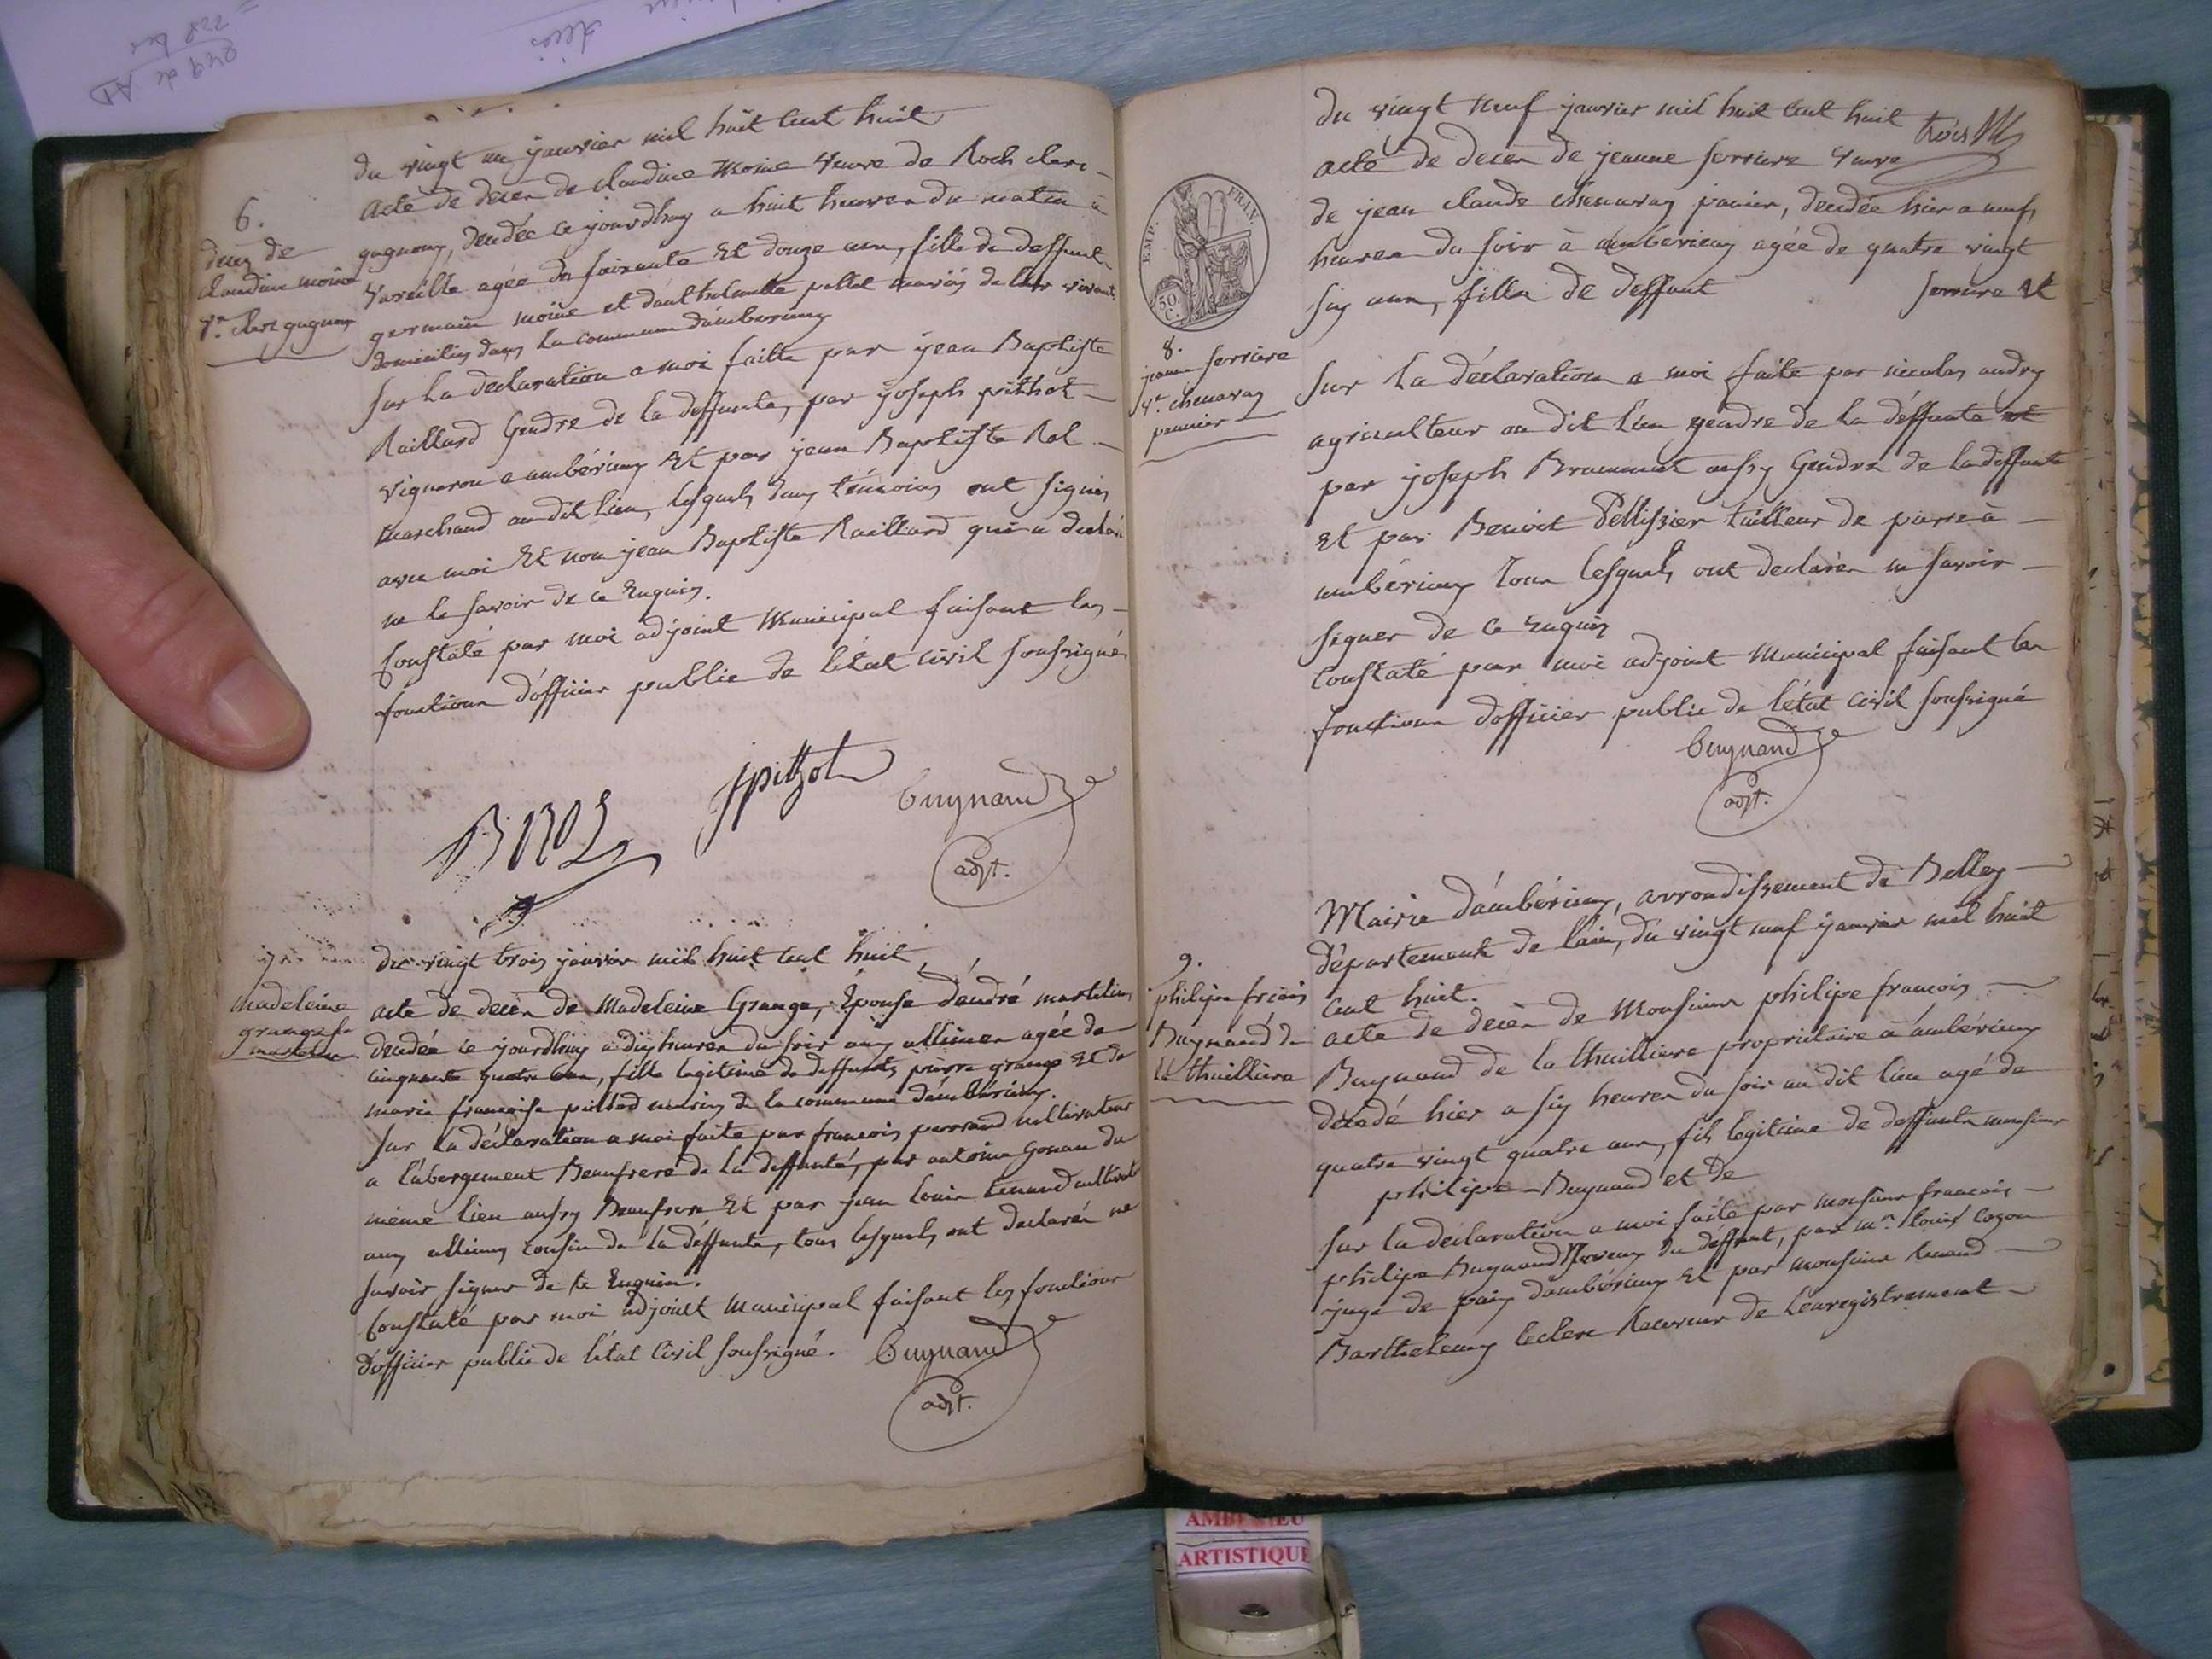 6.
deces de
claudine moine
Ve. clerc gagneux
du vingt un janvier mil huit cent huit
acte de deces de claudine moine veuve de Roch clerc
decedée ce jourdhuy a huit heures du matin à
Vareille agée de soixante et douze ans, fille de deffunts
germain moine et pellet mariés de leur vivant
domiciliés dans la commune dambérieux
sur la declaration a moi faitte par jean Baptiste
Raillard gendre de la deffunte, par joseph pithot
vigneron a ambérieux et par jean Baptiste Rol
marchand au dit lieu, lesquels deux témoins ont signés
avec moi et non jean Baptiste Raillard qui a declaré
ne le savoir de ce enquis.
Constaté par moi adjoint municipal faisant les
fonctions dofficier public de létat civil soussigné
BROL
jpithot
Buynand
adjt.
7.
madeleine
grange fe
martelin
du vingt trois janvier mil huit cent huit
acte de decès de Madeleine Grange, Épouse dandré martelin
decedée ce jourdhuy a dix heures du soir aux allimes agée de
cinquante quatre ans, fille legitime de deffunts pierre grange et de
marie françoise mariés de la commune dambérieux.
sur la déclaration a moi faite par francois perrand cultivateur
a labergement Beaufrere de la deffunte, par antoine gonan du
même lieu aussy Beaufrere et par jean louis tenand cultivateur
aux allimes cousin de la déffunte, tous lesquels ont declarés ne
savoir signer de ce enquis.
Constaté par moi adjoint municipal faisant les fonctions
dofficier public de létat civil soussigné.
Buynand
adjt.
trois
EMP. FRAN.
50. C.
8.
jeanne serriere
Ve. chenavaz
pannier
du vingt neuf janvier mil huit cent huit
acte de deces de jeanne serriere veuve
de jean claude chenavaz panier, decedée hier a neuf
heures du soir à ambérieux agée de quatre vingt
six ans, fille de deffunt serriere et
sur la déclaration a moi faite par nicolas audry
agriculteur au dit lieu gendre de la déffunte et
par joseph Brammet aussy gendre de la deffunte
et par Benoit Pellissier tailleur de pierre à
ambérieux tous lesquels ont declarés ne savoir
signer de ce enquis
Constaté par moi adjoint municipal faisant les
fonctions dofficier public de létat civil soussigné
Buynand
adjt.
9.
philipe frçois
Buynand de
la thuilliere
Mairie dambérieux, arrondissement de Belley
département de lain, du vingt neuf janvier mil huit
cent huit.
acte de decès de Monsieur philipe francois
Buynand de la thuilliere proprietaire à ambérieux
décedé hier a six heures du soir au dit lieu agé de
quatre vingt quatre ans, fils legitime de deffunts monsieur
philipe Buynand et de
sur la declaration a moi faite par monsieur francois
philipe Buynand Neveux du déffunt, par mr. louis cozon
juge de paix dambérieux et par monsieur Renaud
Barthelemy leclerc Receveur de lenregistrement
AMBERIEU
ARTISTIQUE